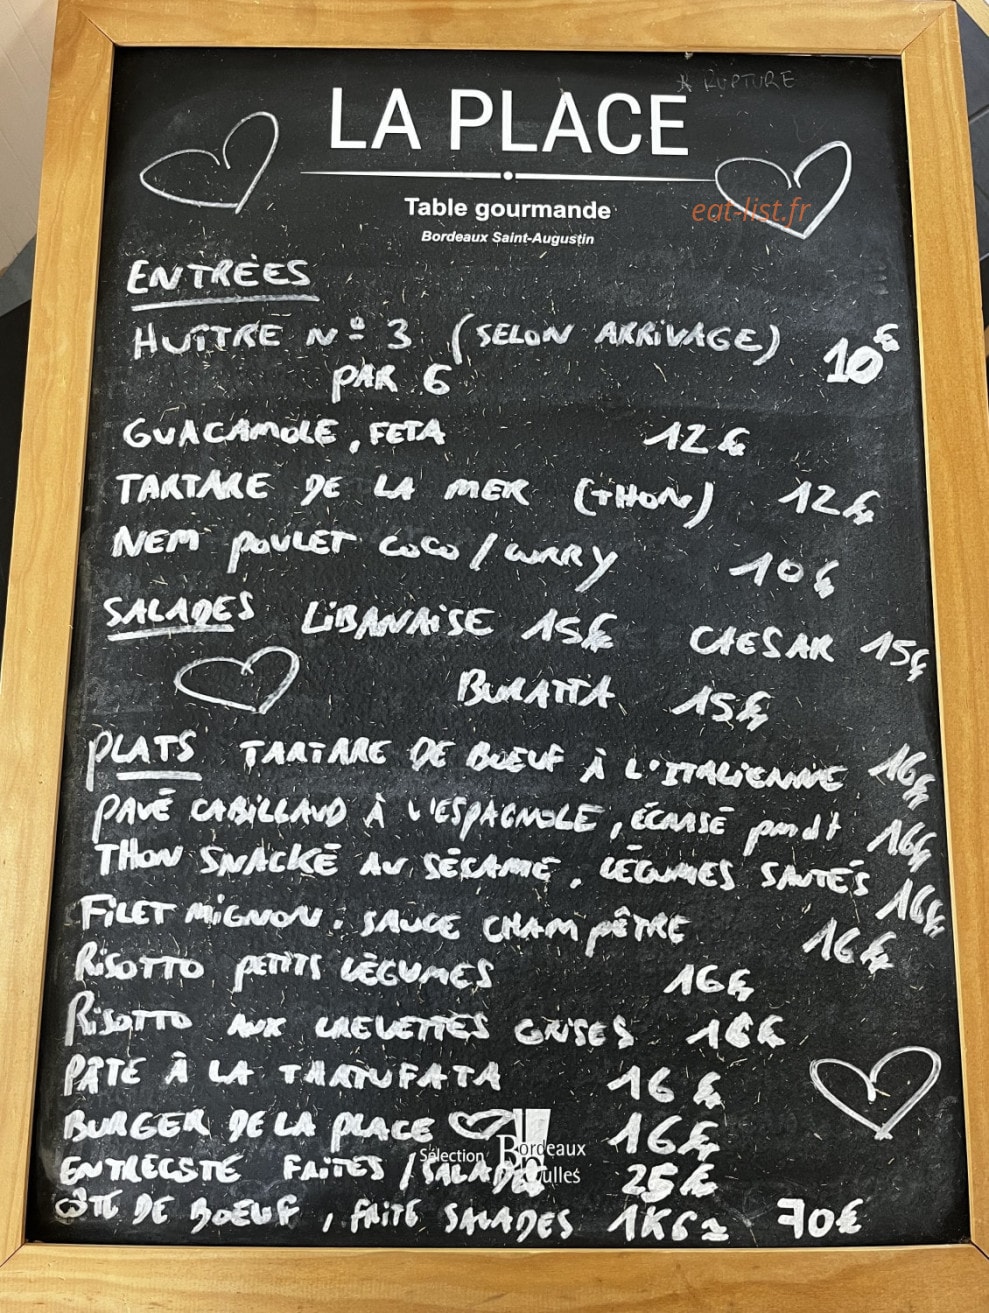 * RUPTURE
LA PLACE
Table gourmande
eat-list.fr
Bordeaux Saint-Augustin
ENTRÉES
HUÎTRE Nº 3 (SELON ARRIVAGE) 10€
PAR 6
GUACAMOLE, FETA 12€
TARTARE DE LA MER (THON) 12€
NEM POULET COCO / CURRY 10€
SALADES LIBANAISE 15€ CAESAR 15€
BURATTA 15€
PLATS TARTARE DE BOEUF À L'ITALIENNE 16€
PAVÉ CABILLAUD À L'ESPAGNOLE, ÉCRASÉ pmdt 16€
THON SNACKÉ AU SÉSAME, LÉGUMES SAUTÉS 16€
FILET MIGNON. SAUCE CHAMPÊTRE 16€
RISOTTO PETITS LÉGUMES 16€
RISOTTO AUX CREVETTES GRISES 16€
PÂTE À LA TARTUFATA 16€
BURGER DE LA PLACE 16€
Sélection Bordeaux Bulles
ENTRECÔTE FRITES / SALADE 25€
CÔTE DE BOEUF, FRITE SALADES 1KG2 70€